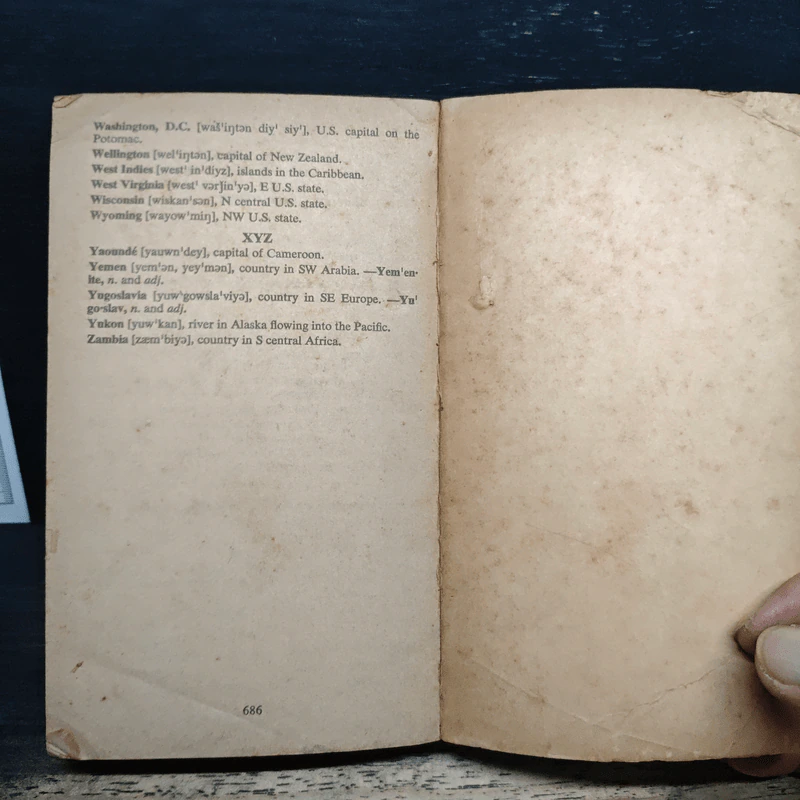 Washington, D.C. [waš'iŋtən diy' siy'], U.S. capital on the
Potomac.
Wellington [wel'iŋtən], capital of New Zealand.
West Indies [west' in'diyz], islands in the Caribbean.
West Virginia [west' vərǰin'yə], E U.S. state.
Wisconsin [wiskan'sən], N central U.S. state.
Wyoming [wayow'miŋ], NW U.S. state.
XYZ
Yaoundé [yauwn'dey], capital of Cameroon.
Yemen [yem'ən, yey'mən], country in SW Arabia. —Yem'en·
ite, n. and adj.
Yugoslavia [yuw'gowsla'viyə], country in SE Europe. —Yu'
go·slav, n. and adj.
Yukon [yuw'kan], river in Alaska flowing into the Pacific.
Zambia [zæm'biyə], country in S central Africa.
686